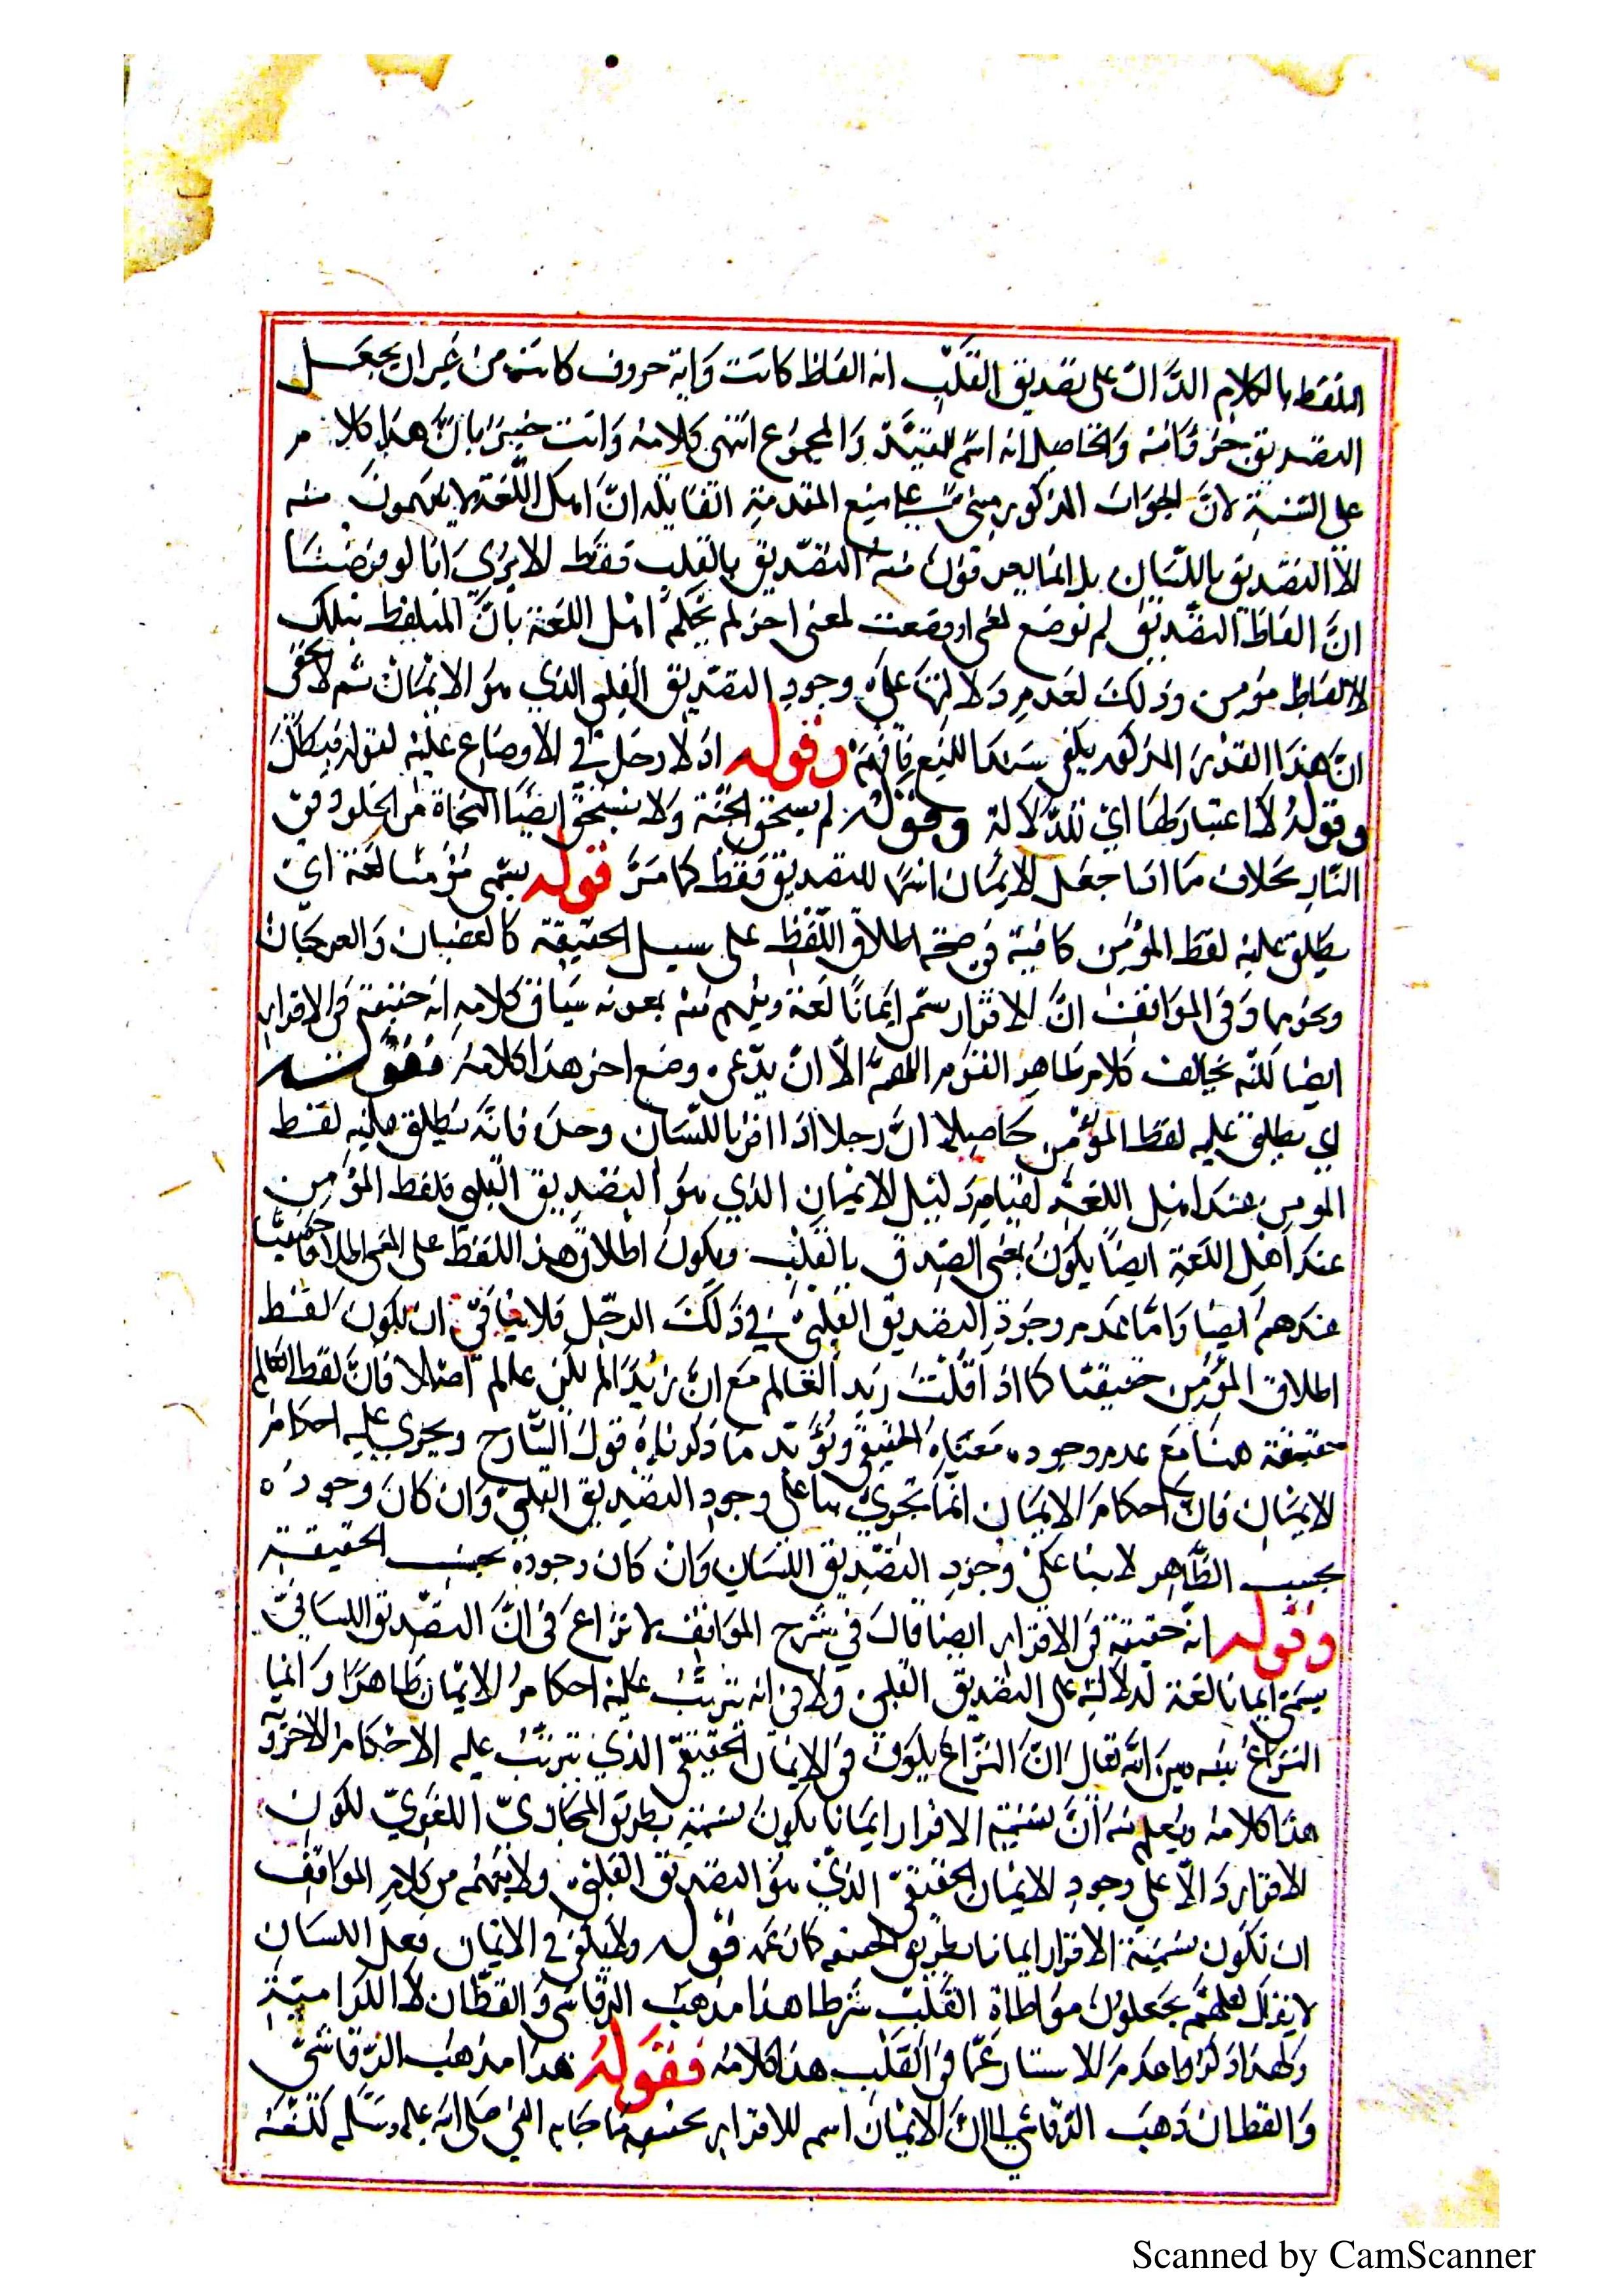 التلفظ بالكلام الدَّال على تصديق القلب انه الفاظ كانت وَاية حروف كانت من غير ان يجعل
التصديق جزؤًا منه وَالحاصل انه اسم للمقيَّد وَالمجموع انتهى كلامه وَانت خبير بانَّ هذا كلام
على السّند لانَّ الجواب المذكور مبنى على منع المقدمة القائلة انَّ اهل اللّغة لا يفهمون منه
الا التصديق باللّسان بل انما يعرفون منه التصديق بالقلب فقط الا يرى انا لو فرضنا
انَّ الفاظ التصديق لم توضع لمعنى او وضعت لمعنى اخر لم يحكم اهل اللغة بانَّ المتلفظ بتلك
الالفاظ مؤمن وذلك لعدم دلالتها على وجود التصديق القلبى الذي هو الايمان ثم لا يخفى
انَّ هذا القدر المذكور يكفى سندا للمنع فافهم وقوله اذ لا دخل في الاوضاع علة لقوله فبطلان
وقوله لا اعتبار لها اي للدّلالة وقوله لم يستحق الجنّة ولا يستحق ايضا النجاة من الخلود في
النار بخلاف ما اذا جعل الايمان اسما للتصديق فقط كما مرَّ قوله يسمى مؤمنا لغة اي
يطلق عليه لفظ المؤمن كافية في صحة اطلاق اللّفظ على سبيل الحقيقة كالغضبان وَالفرحان
ونحوهما وَفى المواقف انَّ الاقرار يسمى ايمانًا لغة ويفهم منه بمعونة سياق كلامه انه حقيقة فى الاقرار
ايضا لكنّه يخالف كلام ظاهر القوم اللهمَّ الّا ان يدّعى وضع اخر هذا كلامه فقوله
اي يطلق عليه لفظ المؤمن حاصله انَّ رجلا اذا اقر باللّسان وحده فانَّه يطلق عليه لفظ
المومن عند اهل اللغة لقيام دليل الايمان الذي هو التصديق القلبى فلفظ المؤمن
عند اهل اللغة ايضًا يكون بمعنى الصدق بالقلب ويكون اطلاق هذا اللفظ على المقر اطلاقا حقيقيًّا
عندهم ايضا وَامّا عدم وجود التصديق القلبىّ في ذلك الرجل فلا ينافى ان يكون لفظ
اطلاق المؤمن حقيقتا كما اذا قلت زيد العالم مع انَّ زيدًا لم يكن عالم اصلا فانَّ لفظ العالم
حقيقة هنا مع عدم وجود معناه الحقيقى ويؤيّد ما ذكرناه قول الشّارح ويجرى عليه احكام
الايمان فانَّ احكام الايمان انما تجري بنا على وجود التصديق القلبىّ وَان كان وجوده
بحسب الظّاهر لا بنا على وجود التصديق اللسان وَان كان وجوده بحسب الحقيقة
وقوله انّه حقيقة فى الاقرار ايضا قال في شرح المواقف لا نزاع فى انَّ التصديق اللسانىّ
يسمى ايمانا لغة لدلالته على التصديق القلبى ولا فى انه يترتب عليه احكام الايمان ظاهرا وَانما
النزاع فيما بينه وبين اللّه تعالى انَّ النزاع يكون فى الايمان الحقيقى الذي يترتّب عليه الاحكام الاخرويّة
هذا كلامه ويعلم منه انَّ تسمية الاقرار ايمانا يكون تسمية بطريق المجازىّ اللغوىّ لكون
الاقرار دالّا على وجود الايمان الحقيقى الذي هو التصديق القلبىّ ولا يفهم من كلام المواقف
ان تكون تسمية الاقرار ايمانا بطريق الحقيقة كان عمّه قوله ولا يكفى في الايمان فعل اللسان
لا يقال لعلهم يجعلون مواطاة القلب شرطا هذا مذهب الرقاشى وَالقطّان لا الكرّامية
وَلهذا ذكروا عدم الاستتار عمّا فى القلب هذا كلامه فقوله هذا مذهب الرّقاشىّ
وَالقطان ذهب الرقاشي الى انَّ الايمان اسم للاقرار بحقيقة ما جا به النبى صلى اللّه عليه وسلم لكنّه
Scanned by CamScanner